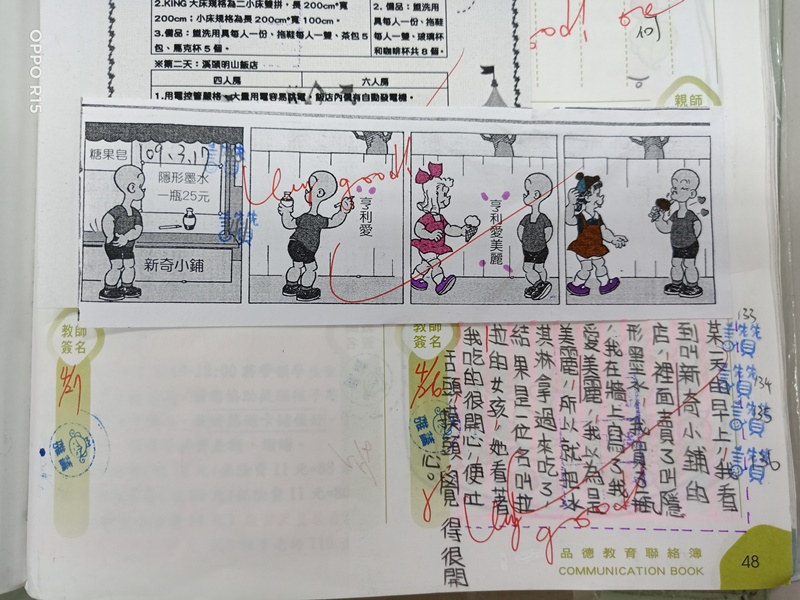 OPPO R15
2.KING 大床規格為二小床雙拼，長 200cm*寬
200cm；小床規格為長 200cm*寬 100cm。
3.備品：盥洗用具每人一份、拖鞋每人一雙、茶包 5
包、馬克杯 5 個。
2.備品：盥洗用
具每人一份、拖鞋
每人一雙、玻璃杯
和咖啡杯共 8 個。
※第二天：溪頭明山飯店
四人房
六人房
親師
糖果皂
109.3.17
隱形墨水
一瓶25元
新奇小鋪
亨利愛
亨利愛美麗
Very good!
教師
簽名
教師
簽名
某一天的早上，我看
到叫新奇小鋪的
店，裡面賣了叫隱
形墨水，我買了一瓶
，我在牆上寫了我
愛美麗，我以為是
美麗，所以就把冰
淇淋拿過來吃了，
結果是一位名叫拉
拉的女孩，她看著
我吃的很開心，便吐
舌頭，摸頭，覺得很開
心。
Very good
133
134
135
136
品德教育聯絡簿
COMMUNICATION BOOK
48